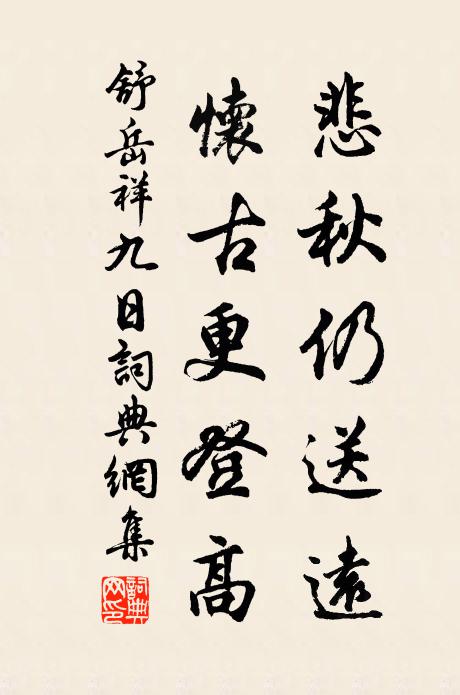 悲秋仍送遠
懷古更登高
舒岳祥九日詞典網集
詞典網印